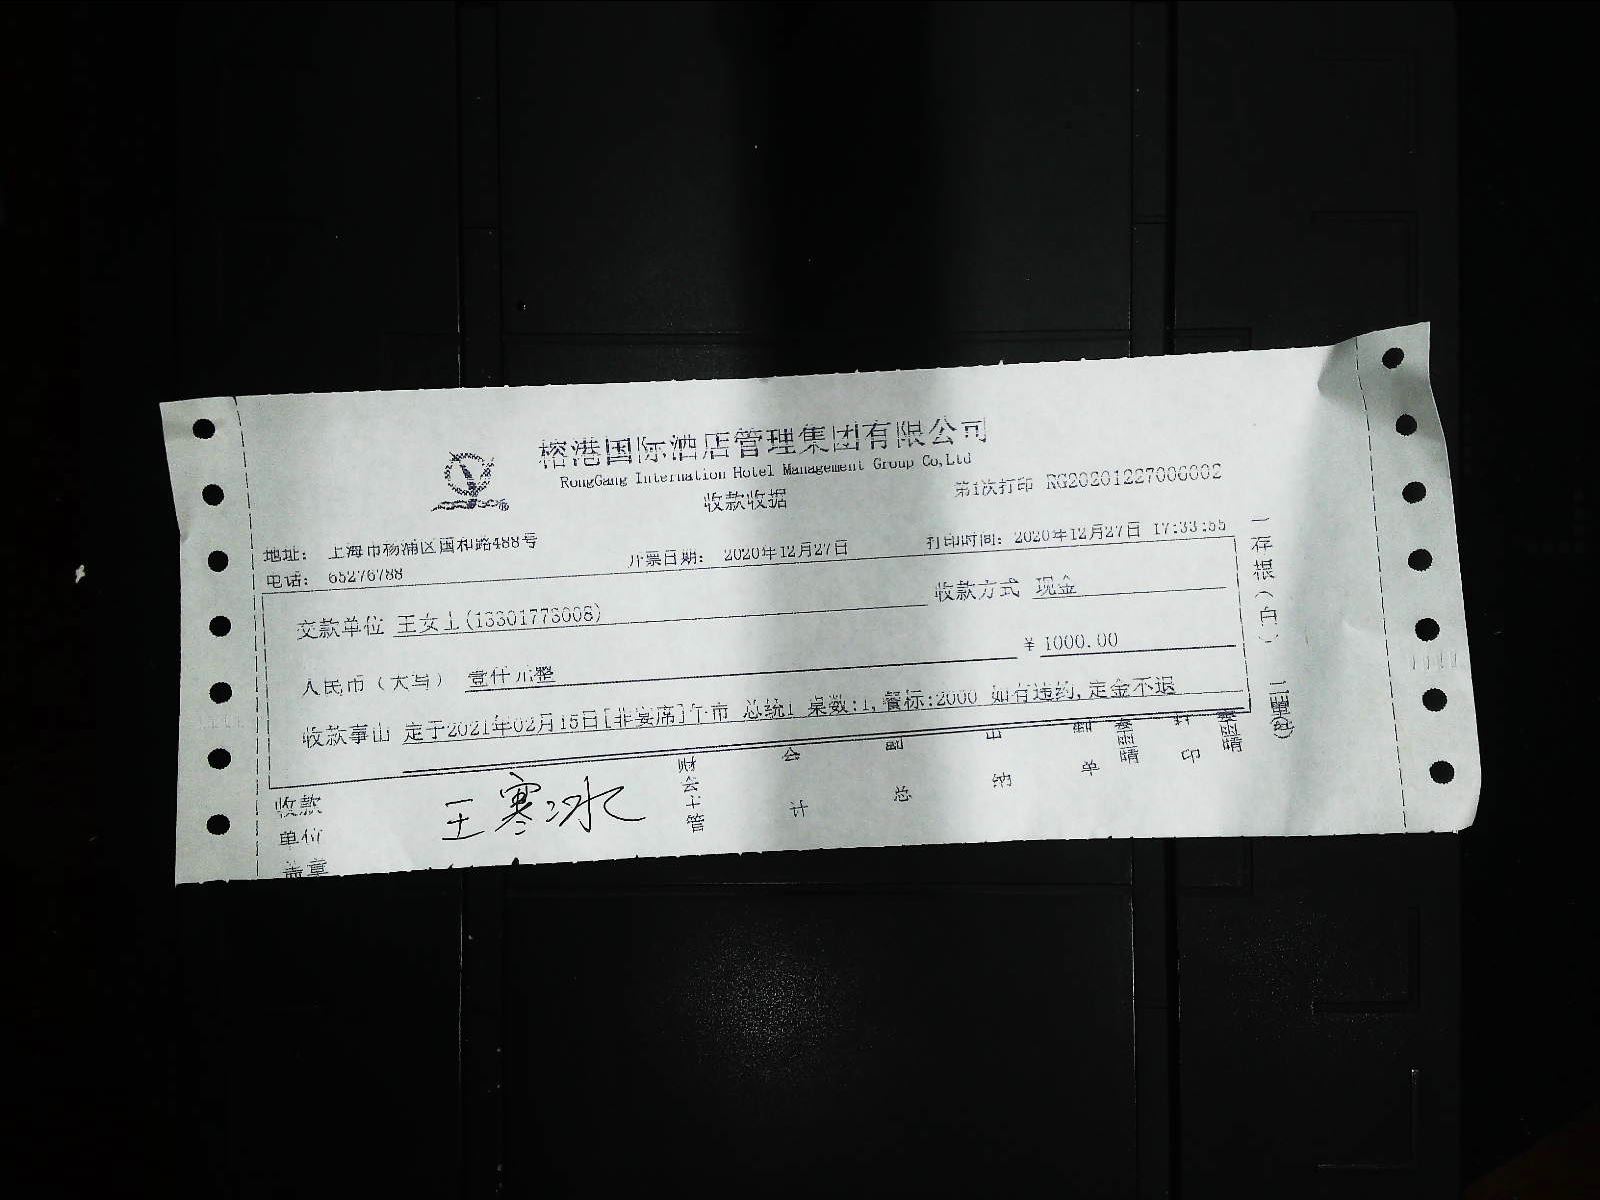 榕港国际酒店管理集团有限公司
RongGang Internation Hotel Management Group Co,Ltd
收款收据
第1次打印 RG20201227000002
地址: 上海市杨浦区国和路488号
电话: 65276788
开票日期: 2020年12月27日
打印时间: 2020年12月27日 17:33:55
交款单位 王女士(13301773008)
收款方式 现金
人民币(大写) 壹仟元整
¥ 1000.00
收款事由 定于2021年02月15日[非宴席]午市 总统1 桌数:1,餐标:2000 如有违约,定金不退
收款单位盖章
王寒冰
财会主管
会计
副总
出纳
制单
秦雨晴
打印
秦雨晴
一存根(白)